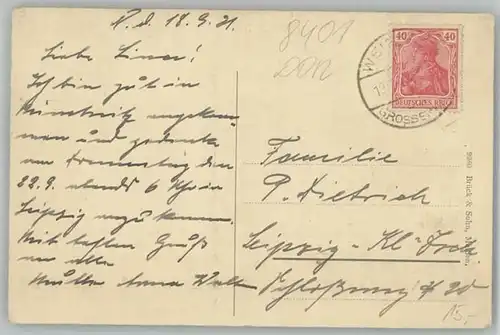 R. d. 18.9.21.
Liebe Lina!
Ich bin gut in
angekom-
men und gedenke
am Donnerstag den
22.9. abends 6 Uhr in
Leipzig anzukommen.
Mit besten Gruß
an alle
Mutter Anna
8401
DDR
40 40
DEUTSCHES REICH
GROSSE
Familie
P. Dietrich
Leipzig - Kl.
20
Brück & Sohn,
15,-